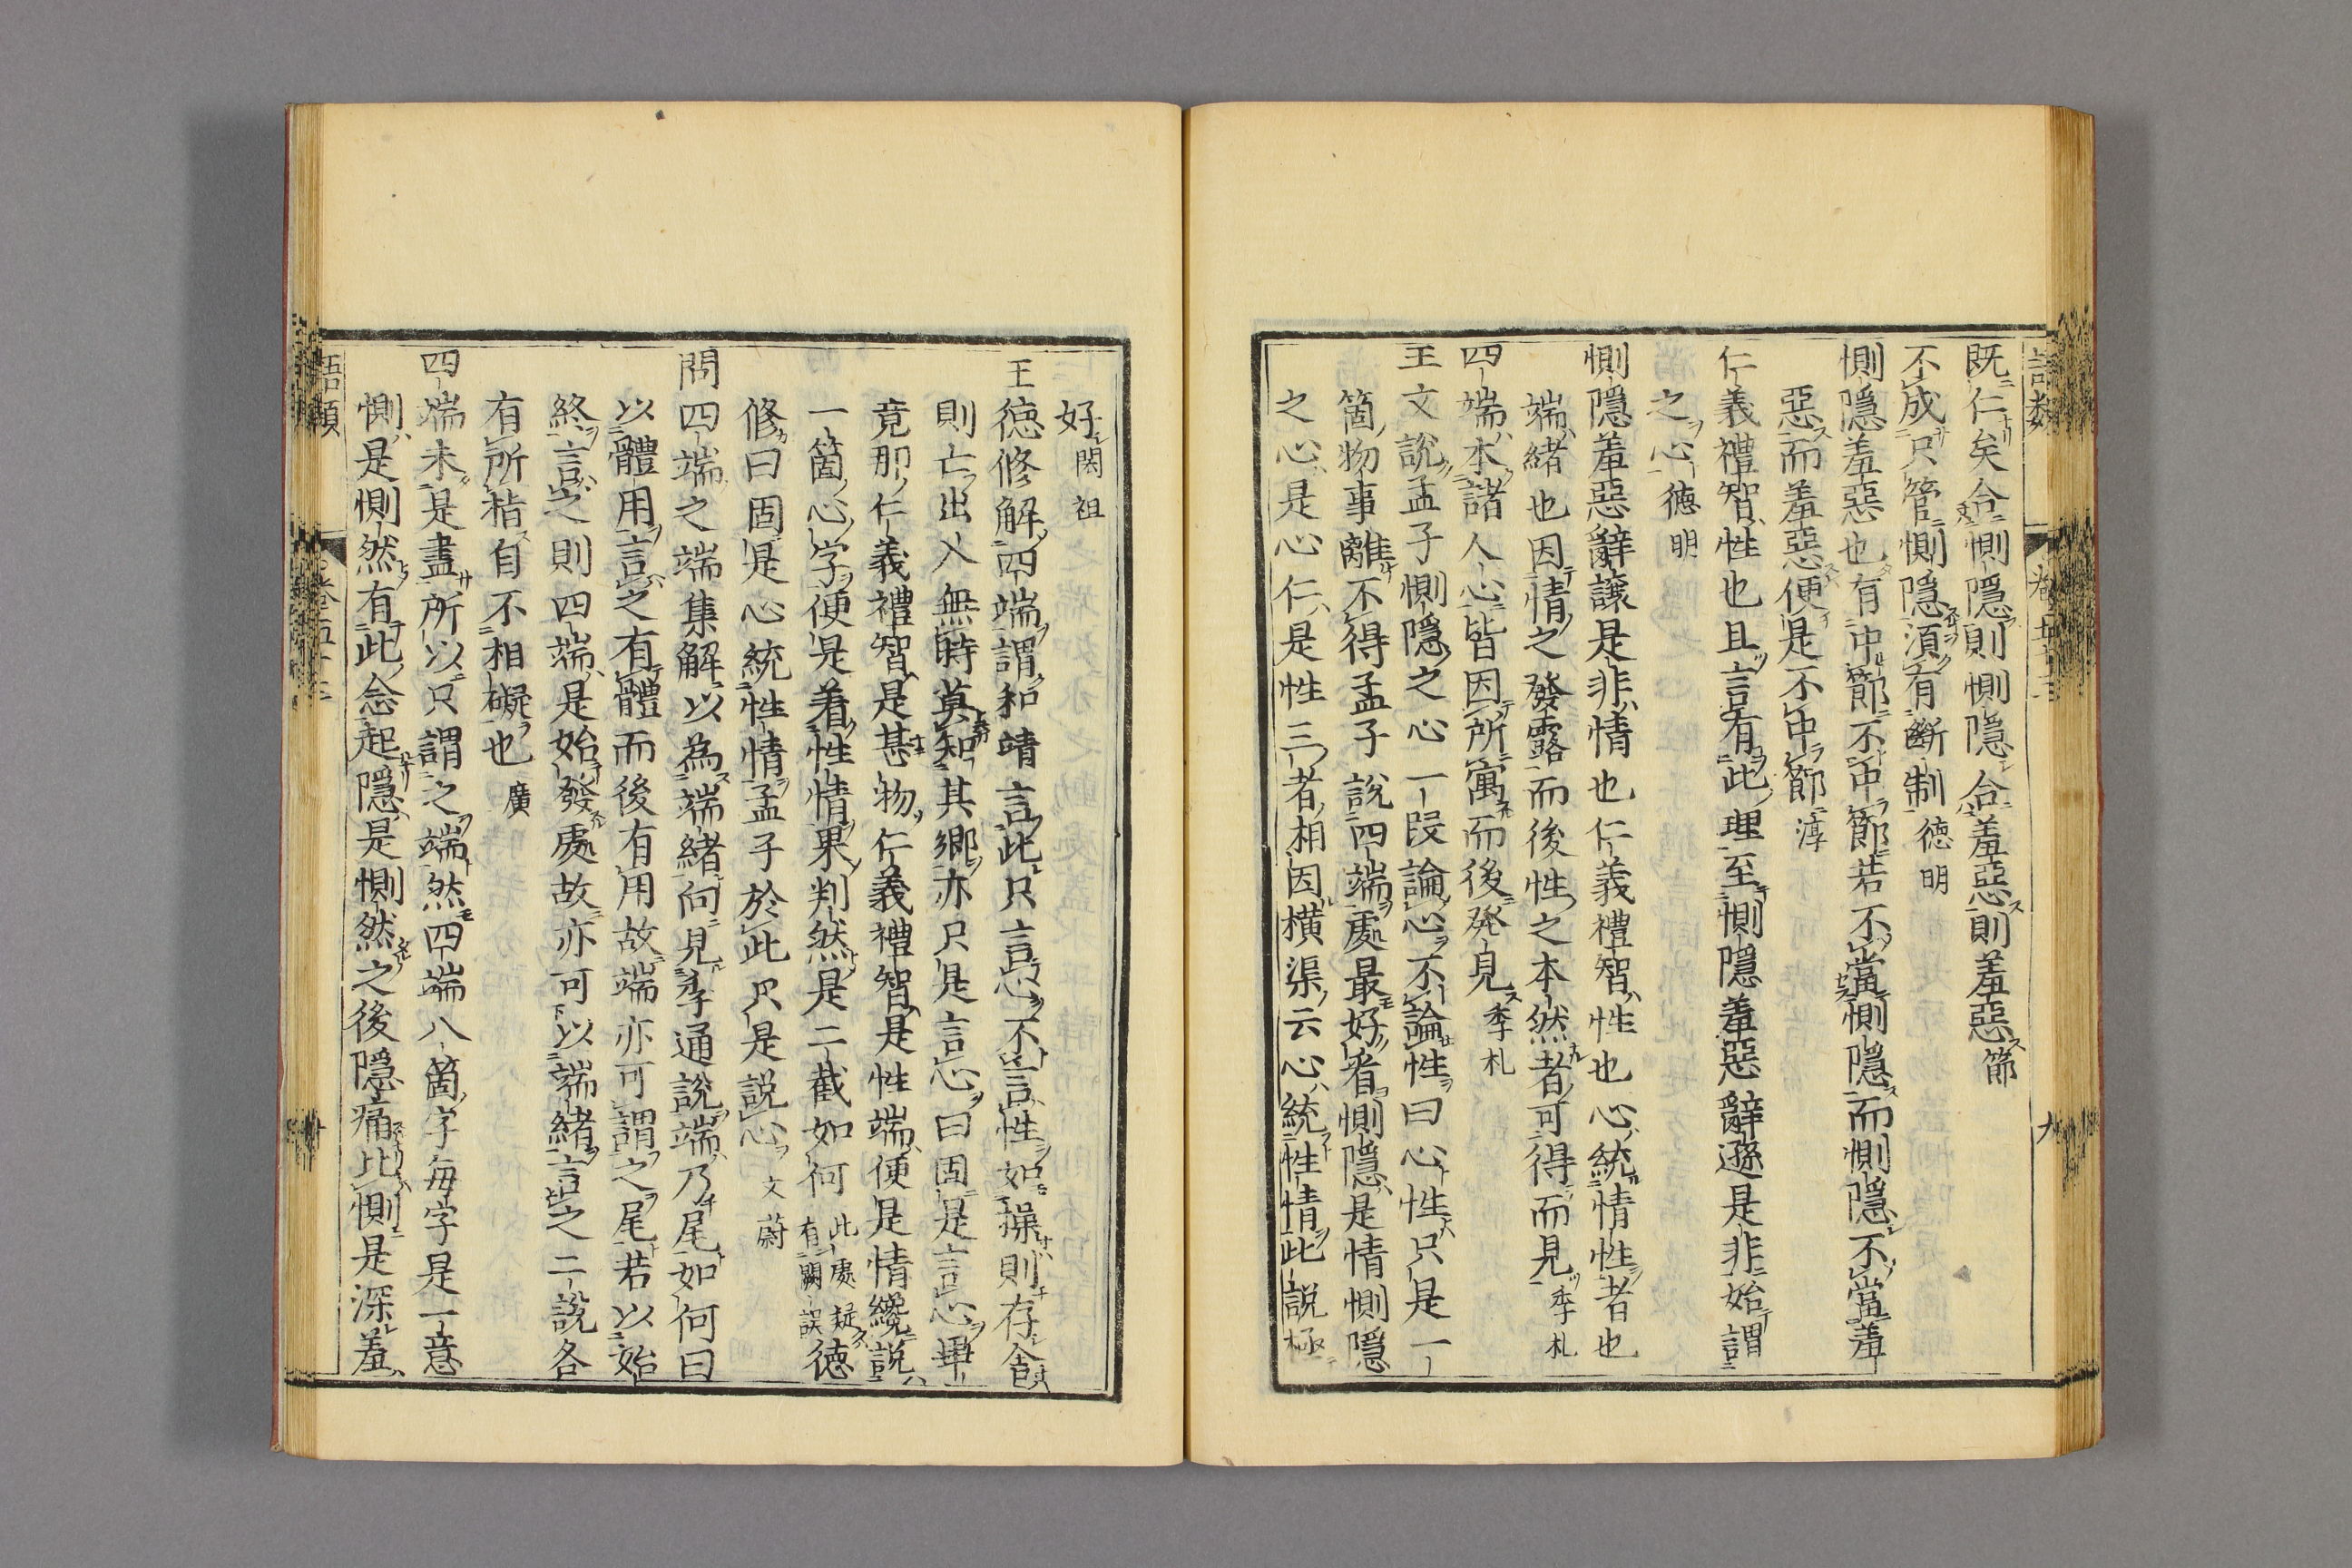 既仁矣合惻隱則惻隱合羞惡則羞惡節
不成只管惻隱須有斷制德明
惻隱羞惡也有中節不中節若不當惻隱而惻隱不當羞
惡而羞惡便是不中節淳
仁義禮智性也且言有此理至惻隱羞惡辭遜是非始謂
之心德明
惻隱羞惡辭讓是非情也仁義禮智性也心統情性者也
端緒也因情之發露而後性之本然者可得而見季札
四端本諸人心皆因所寓而後発見季札
王文說孟子惻隱之心一段論心不論性曰心性只是一
箇物事離不得孟子說四端處最好看惻隱是情惻隱
之心是心仁是性三者相因橫渠云心統性情此說極
好閎祖
王德修解四端謂和靖言此只言心不言性如操則存舍
則亡出入無時莫知其鄉亦只是言心曰固是言心畢
竟那仁義禮智是甚物仁義禮智是性端便是情纔說
一箇心字便是着性情果判然是二截如何此處疑有闕誤德
修曰固是心統性情孟子於此只是說心文蔚
問四端之端集解以為端緒向見季通說端乃尾如何曰
以體用言之有體而後有用故端亦可謂之尾若以始
終言之則四端是始發處故亦可以端緒言之二說各
有所指自不相礙也廣
四端未是盡所以只謂之端然四端八箇字每字是一意
惻是惻然有此念起隱是惻然之後隱痛比惻是深羞
語類